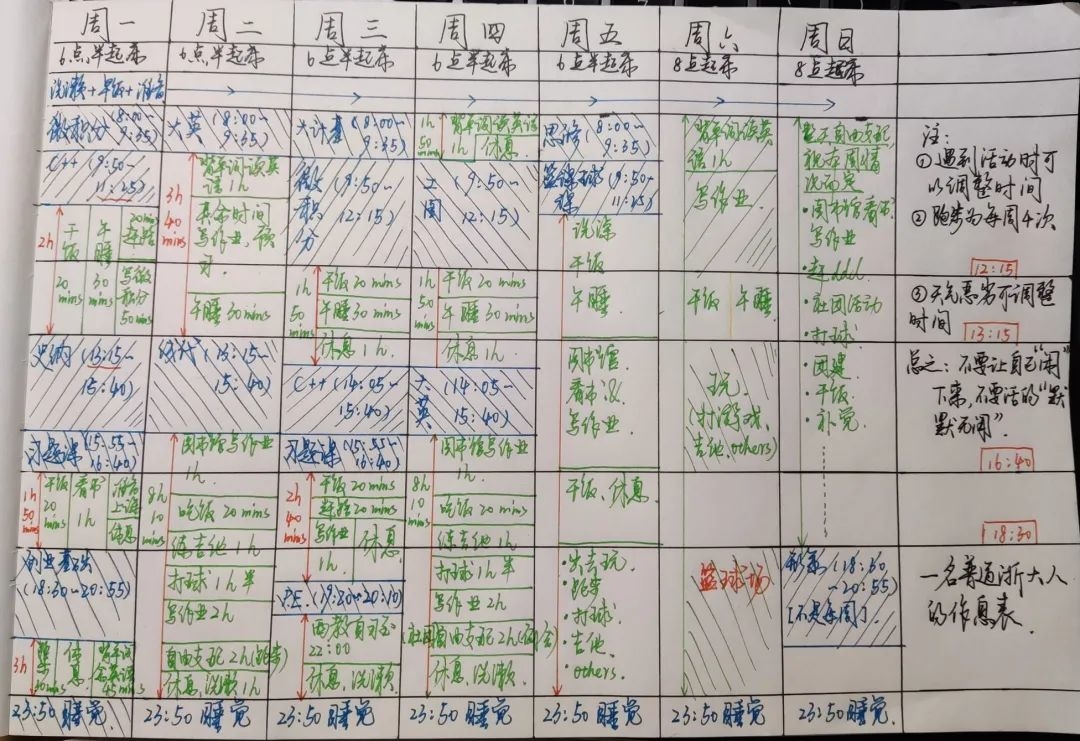 周一 周二 周三 周四 周五 周六 周日
6点半起床 6点半起床 6点半起床 6点半起床 6点半起床 8点起床 8点起床
洗漱+早饭+准备
微积分 (8:00~
9:35)
C++ (9:50~
11:25)
2h
干饭
20
mins
午睡
30
mins
20mins
写微
积分
50mins
史纲 (13:15~
15:40)
习题课 (15:55~
16:40)
1h
50
mins
干饭
20
mins
看书
1h
准备
上课
休息
创业基础
(18:30~20:55)
3h
跑步
休
息
背单词
45mins
23:50 睡觉
大英 (8:00~
9:35)
3h
40
mins
背单词读英
语 1h
其余时间
写作业,预
习.
午睡 30 mins
线代 (13:15~
15:40)
8h
10
mins
图书馆写作业
1h.
吃饭 20 mins
练吉他 1h
打球 1h 半
写作业 2h
自由支配 2h(跑步)
休息、洗漱 1h
23:50 睡觉
大计基 (8:00~
9:35)
微积分 (9:50~
12:15)
1h
50
mins
干饭 20 mins
午睡 30 mins
休息 1h.
C++ (14:05~
15:40)
习题课 (15:55~
16:40)
2h
40
mins
干饭 20 mins
20 mins
写作业
1h.
休息
P.E. (19:20~20:10)
西教自习至
22:00
休息、洗漱
23:50 睡觉
1h
50
mins
背单词读英语
1h
休息
工图 (9:50~
12:15)
1h
50
mins
干饭 20 mins
午睡 30 mins
休息 1h.
大英 (14:05~
15:40)
8h
10
mins
图书馆写作业
1h.
吃饭 20 mins
练吉他 1h
打球 1h 半
写作业 2h
自由支配 2h
休息、洗漱 1h
23:50 睡觉
思修 (8:00~
9:35)
篮球课 (9:50~
11:25)
洗澡
干饭
午睡
图书馆
看书 &
写作业
干饭、休息
出去玩.
·跑步
·打球
·吉他
·others.
23:50 睡觉
背单词读英
语 1h
写作业.
干饭 午睡
玩.
(打游戏、
吉他、others)
篮球场
23:50 睡觉
整天自由支配
视本周情
况而定
·图书馆看书、
写作业
·社团活动
·打球.
·团建
·干饭.
·补觉.
(18:30
~20:55)
[不是每周]
23:50 睡觉.
注:
①遇到活动时可
以调整时间
②跑步为每周4次
12:15
③天气恶劣可调整
时间
13:15
总之: 不要让自己“闲”
下来,不要活的“默
默无闻”.
16:40
18:30
一名普通浙大人
的作息表.